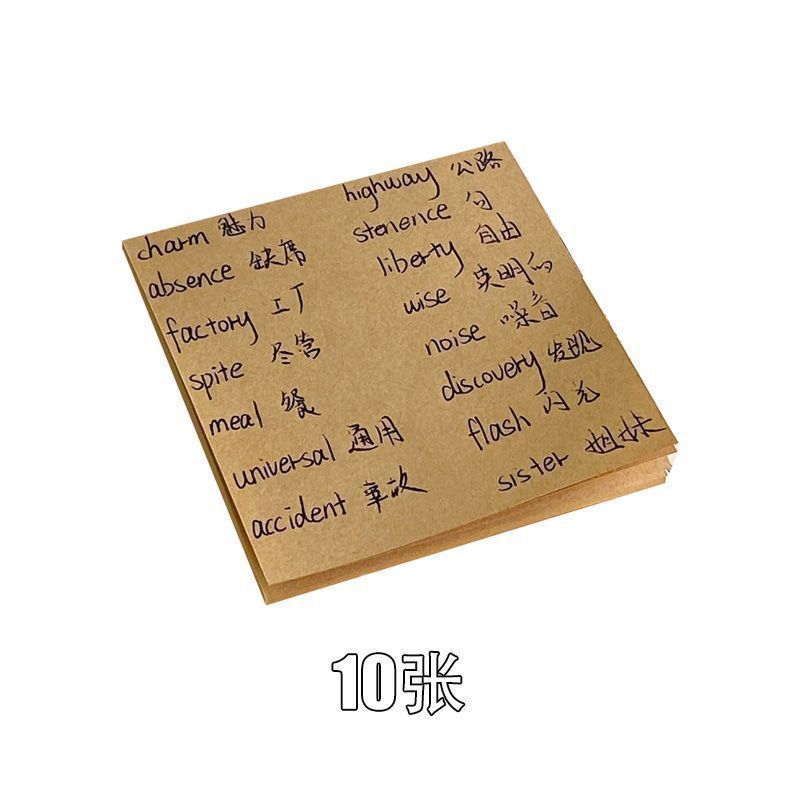 charm 魅力
absence 缺席
factory 工厂
spite 尽管
meal 餐
universal 通用
accident 事故
highway 公路
stenence 句
liberty 自由
wise 英明的
noise 噪音
discovery 发现
flash 闪光
sister 姐妹
10张